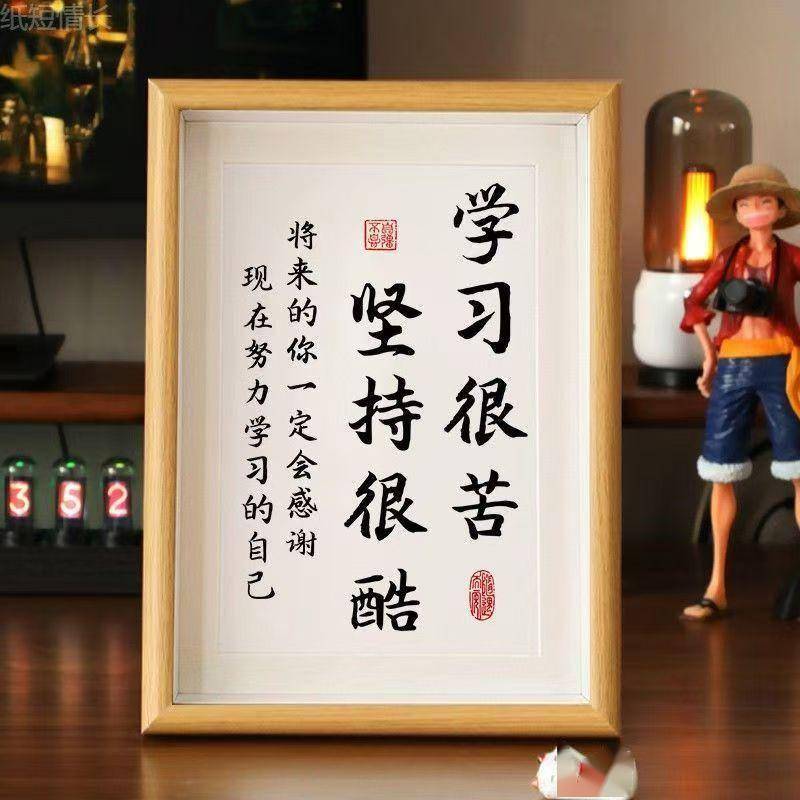 纸短情长
学习很苦
坚持很酷
将来的你一定会感谢
现在努力学习的自己
352